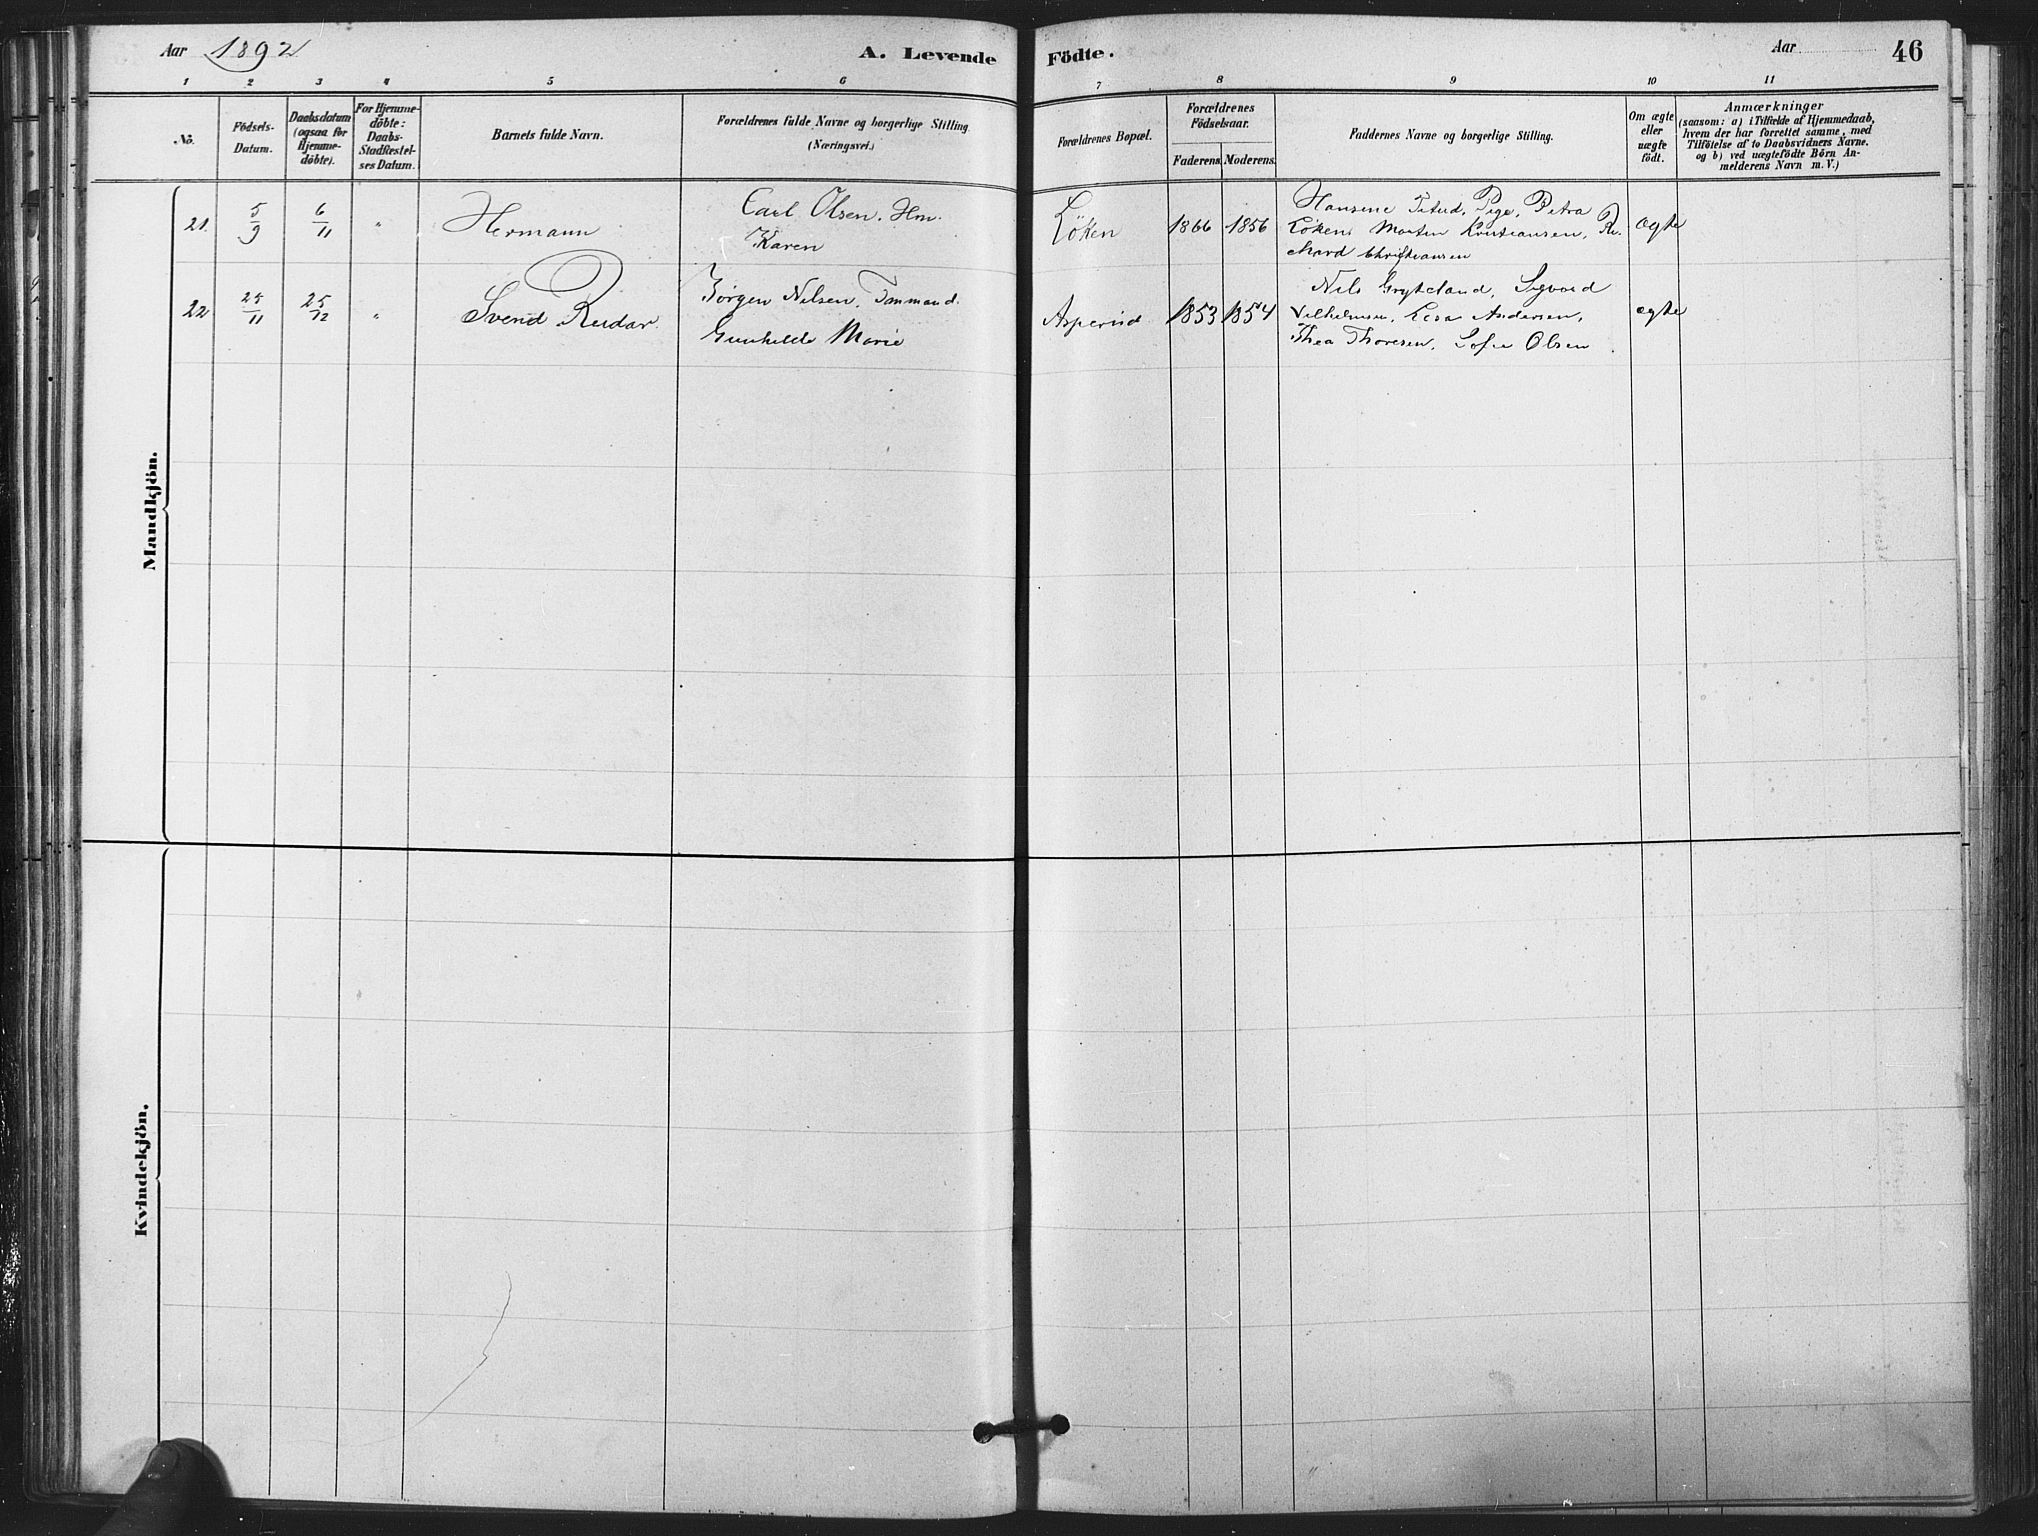 Aar 1892
A. Levende
Födte.
Aar
46
1 2 3 4 5 6 7 8 9 10 11
No.
Födsels-
Datum.
Daabsdatum
(ogsaa for
Hjemme-
döbte).
For Hjemme-
döbte:
Daabs-
Stadfæstel-
ses Datum.
Barnets fulde Navn.
Forældrenes fulde Navne og borgerlige Stilling.
(Næringsvei.)
Forældrenes Bopæl.
Forældrenes
Födselsaar.
Faderens. Moderens.
Faddernes Navne og borgerlige Stilling.
Om ægte
eller
uægte
födt.
Anmærkninger
(saasom: a) i Tilfælde af Hjemmedaab,
hvem der har forrettet samme, med
Tilföielse af to Daabsvidners Navne.
og b) ved uægtefödte Börn An-
melderens Navn m. V.)
Mandkjön.
21. 5/9 6/11 " Hermann
Carl Olsen, Hm.
Karen
Løken 1866 1856
Hansine Pige, Petra
Løken, Morten Kristiansen, Ri-
chard Christiansen
ægte
22 25/11 25/12 " Svend Reidar
Jørgen Nilsen, Tømmend.
Gunhilde Marie
Asperud 1853 1854
Nils Gryteland, Sigvard
Vilhelmsen, Andersen,
Thea Thoresen, Sofie Olsen
ægte
Kvindekjön.